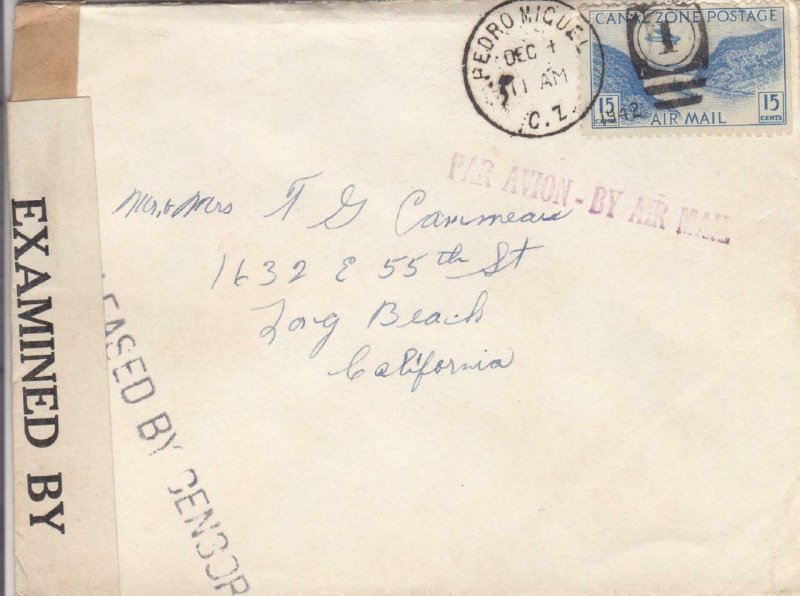 PEDRO MIGUEL
DEC 4
11 AM
1942
C. Z.
CANAL ZONE POSTAGE
1
15 CENTS
15 CENTS
AIR MAIL
PAR AVION - BY AIR MAIL
Mr. & Mrs T G Cammeau
1632 E 55th St
Long Beach
California
EXAMINED BY
EASED BY CENSOR